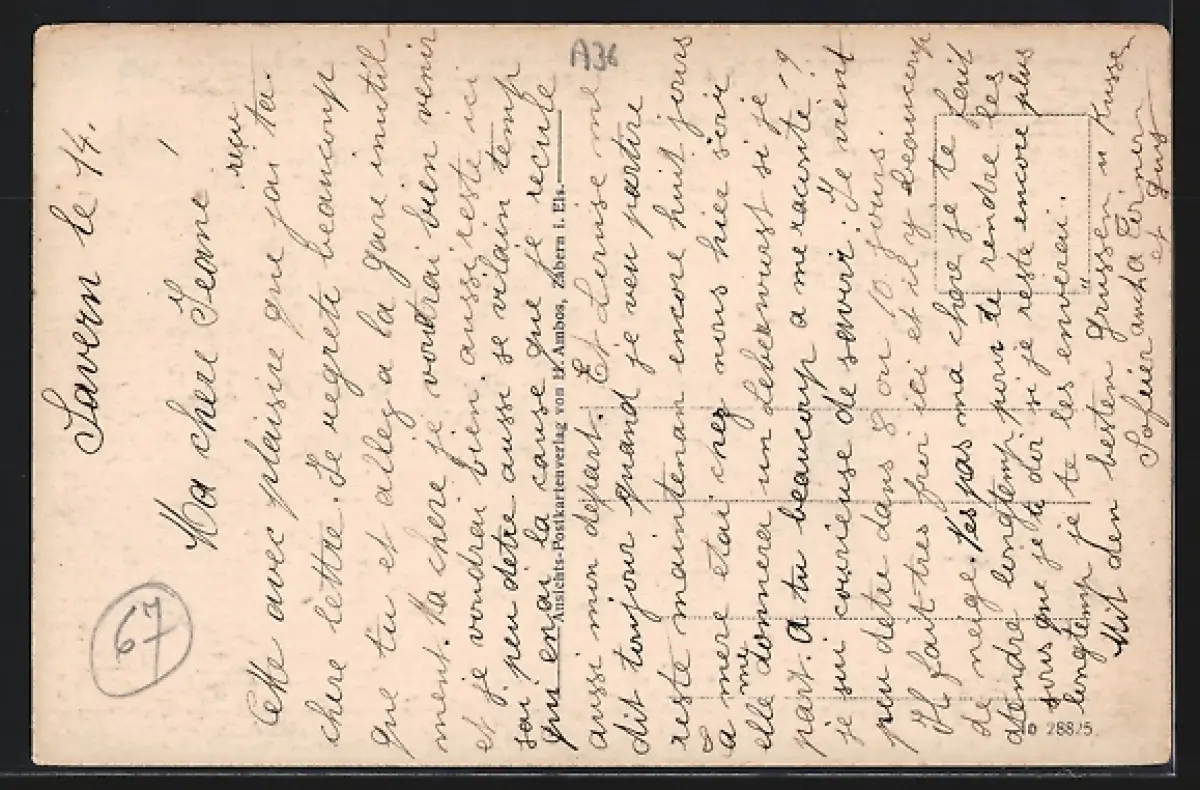 Savern le 14.
Ma chere Leonie !
reçu
Cette avec plaisire que jai ta
chere lettre. Je regrete beaucoup
que tu et allez a la gare inutil-
ment. Ma chere je voudrai bien venir
et je voudrai bien aussi reste ici
sai peu detre aussi se vilain temp
qui en ai la cause que je recule
aussi mon depart. Et Leruise me
dit toujour quand je veu partire
reste maintenan encore huit jours
a mere etai chez nous hier soir
me
elle donnera un Leberwurst si je
part. A tu beaucoup a me raconte ! ?
je sui courieuse de savoir. Je vient
peu detre dans 8 our 10 jours.
Il fait tres froi ici et il y beaucoup
de neige. pas ma chere je te fait
atendre longtemp pour te rendre les
sous que je te doi si je reste encore plus
longtemp je te les enverai.
Mit den besten Grüssen u Kusse
Sofie
et Gus
Ansichts-Postkartenverlag von H. Ambos, Zabern i. Els.
28875
A36
67